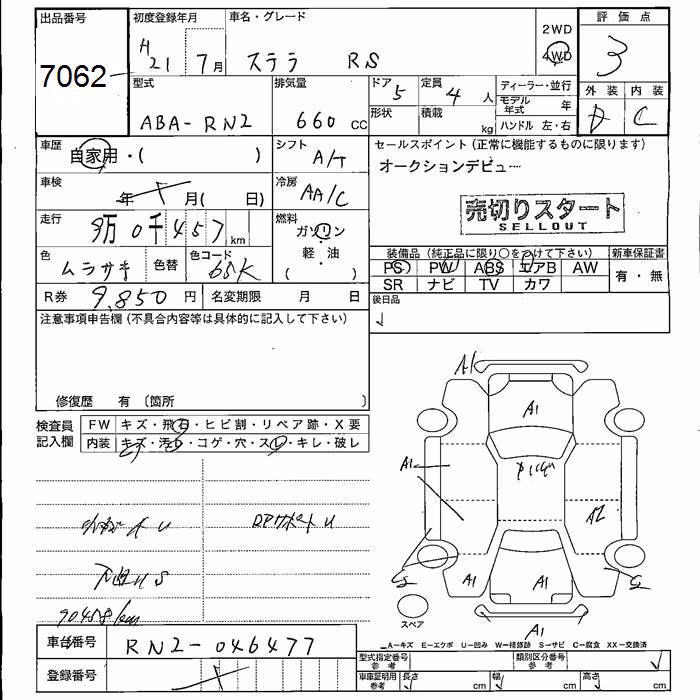 出品番号 初度登録年月 車名・グレード 2WD 評価点
7062 H 21 7月 ステラ RS 4WD 3
型式 排気量 ドア 5 定員 4人 ディーラー・並行 外装 内装
ABA-RN2 660 cc 形状 積載 kg モデル年式 年 D C
ハンドル 左・右
車歴 自家用・( ) シフト A/T セールスポイント(正常に機能するものに限ります)
オークションデビュー
車検 年 月( 日) 冷房 AA/C
売切りスタート
SELLOUT
走行 9万 0千 457 km 燃料 ガソリン・軽・油 ( )
色 ムラサキ 色替 色コード 68K
装備品(純正品に限り○をつけて下さい) 新車保証書
PS PW ABS エアB AW 有・無
SR ナビ TV カワ
R券 9,850円 名変期限 月 日
後日品
注意事項申告欄(不具合内容等は具体的に記入して下さい)
修復歴 有 〔箇所 〕
検査員記入欄 FW キズ・飛石・ヒビ割・リペア跡・X要
内装 キズ・汚れ・コゲ・穴・スレ・キレ・破レ
A1
A1
A1
A2
A1
A1
A1
スペア
90458km
A-キズ E-エクボ U-凹み W-補修跡 S-サビ C-腐食 XX-交換済
車台番号 RN2-046477
型式指定番号 参考 類別区分番号 参考
登録番号
車庫証明用 参考 長さ cm 幅 cm 高さ cm